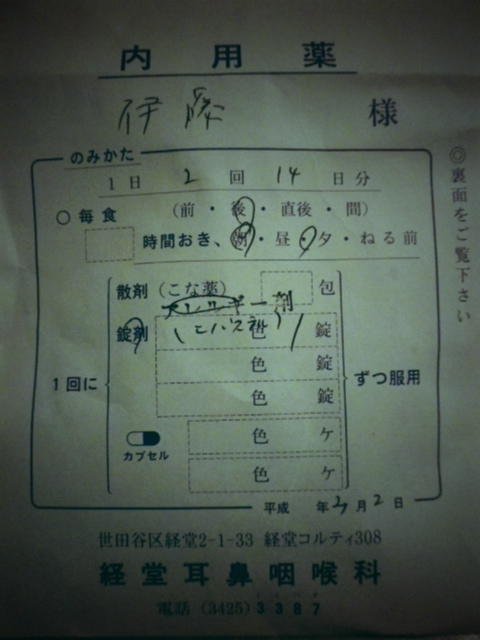 内用薬
伊藤 様
のみかた
1日 2 回 14 日分
○毎食 (前・後・直後・間)
時間おき、朝・昼・夕・ねる前
散剤(こな薬) 包
アレルギー剤
錠剤 (エバステル) 色 1 錠
色 錠
1回に 色 錠 ずつ服用
色 ケ
カプセル
色 ケ
平成 年 2月2日
世田谷区経堂2-1-33 経堂コルティ308
経堂耳鼻咽喉科
電話 (3425) 3387
◎裏面をご覧下さい